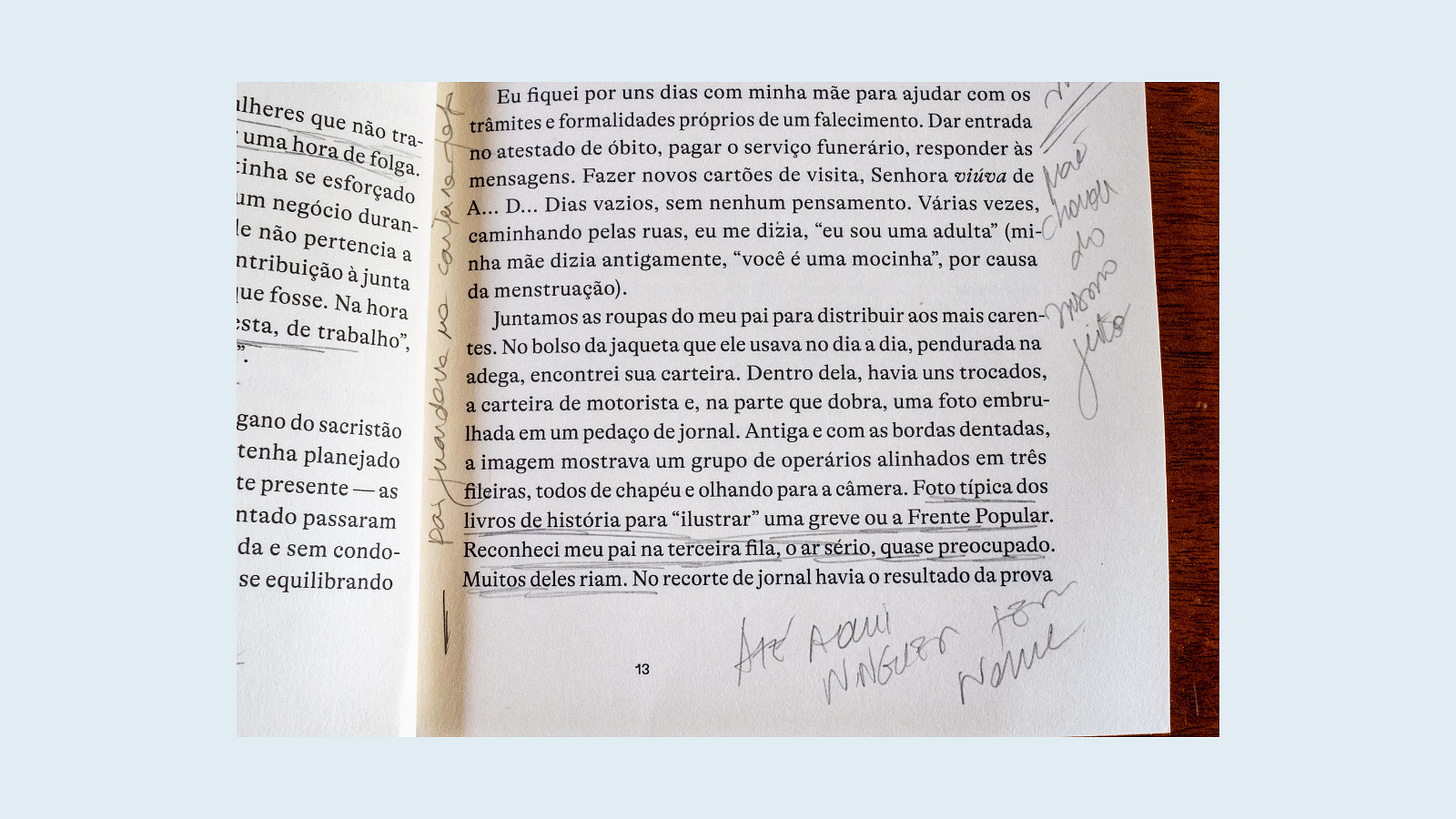 ulheres que não tra-
uma hora de folga.
tinha se esforçado
um negócio duran-
le não pertencia a
ntribuição à junta
que fosse. Na hora
esta, de trabalho”,
”.
gano do sacristão
tenha planejado
te presente — as
ntado passaram
da e sem condo-
se equilibrando
pai guardava na carteira
Eu fiquei por uns dias com minha mãe para ajudar com os
trâmites e formalidades próprios de um falecimento. Dar entrada
no atestado de óbito, pagar o serviço funerário, responder às
mensagens. Fazer novos cartões de visita, Senhora viúva de
A... D... Dias vazios, sem nenhum pensamento. Várias vezes,
caminhando pelas ruas, eu me dizia, “eu sou uma adulta” (mi-
nha mãe dizia antigamente, “você é uma mocinha”, por causa
da menstruação).
Juntamos as roupas do meu pai para distribuir aos mais caren-
tes. No bolso da jaqueta que ele usava no dia a dia, pendurada na
adega, encontrei sua carteira. Dentro dela, havia uns trocados,
a carteira de motorista e, na parte que dobra, uma foto embru-
lhada em um pedaço de jornal. Antiga e com as bordas dentadas,
a imagem mostrava um grupo de operários alinhados em três
fileiras, todos de chapéu e olhando para a câmera. Foto típica dos
livros de história para “ilustrar” uma greve ou a Frente Popular.
Reconheci meu pai na terceira fila, o ar sério, quase preocupado.
Muitos deles riam. No recorte de jornal havia o resultado da prova
do
mesmo
jeito
ATÉ AQUI
NINGUÉM TEM
NOME
13